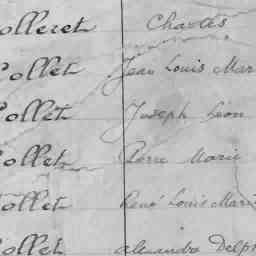 olleret Charles
ollet Jean Louis Mar
ollet Joseph Léon
ollet Pierre Marie
ollet René Louis Marie
ollet Alexandre Delph